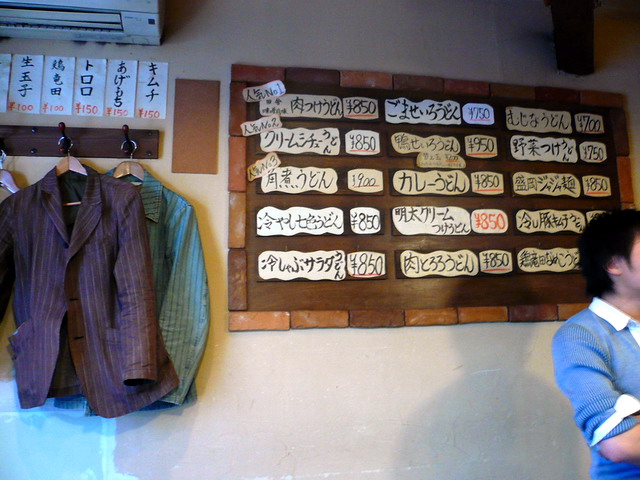 生玉子 ¥100
鶏竜田 ¥100
トロロ ¥150
あげもち ¥150
キムチ ¥150
人気No.1
肉つけうどん ¥850
ごませいろうどん ¥750
むじなうどん ¥700
人気No.2
クリームシチューうどん ¥850
鴨せいろうどん ¥950
野菜つけうどん ¥750
人気No.3
角煮うどん ¥900
カレーうどん ¥850
盛岡ジャジャ麺 ¥850
冷やし七色うどん ¥850
明太クリームつけうどん ¥850
冷し豚キムチうどん
冷しゃぶサラダうどん ¥850
肉とろろうどん ¥850
鶏竜田なめこ